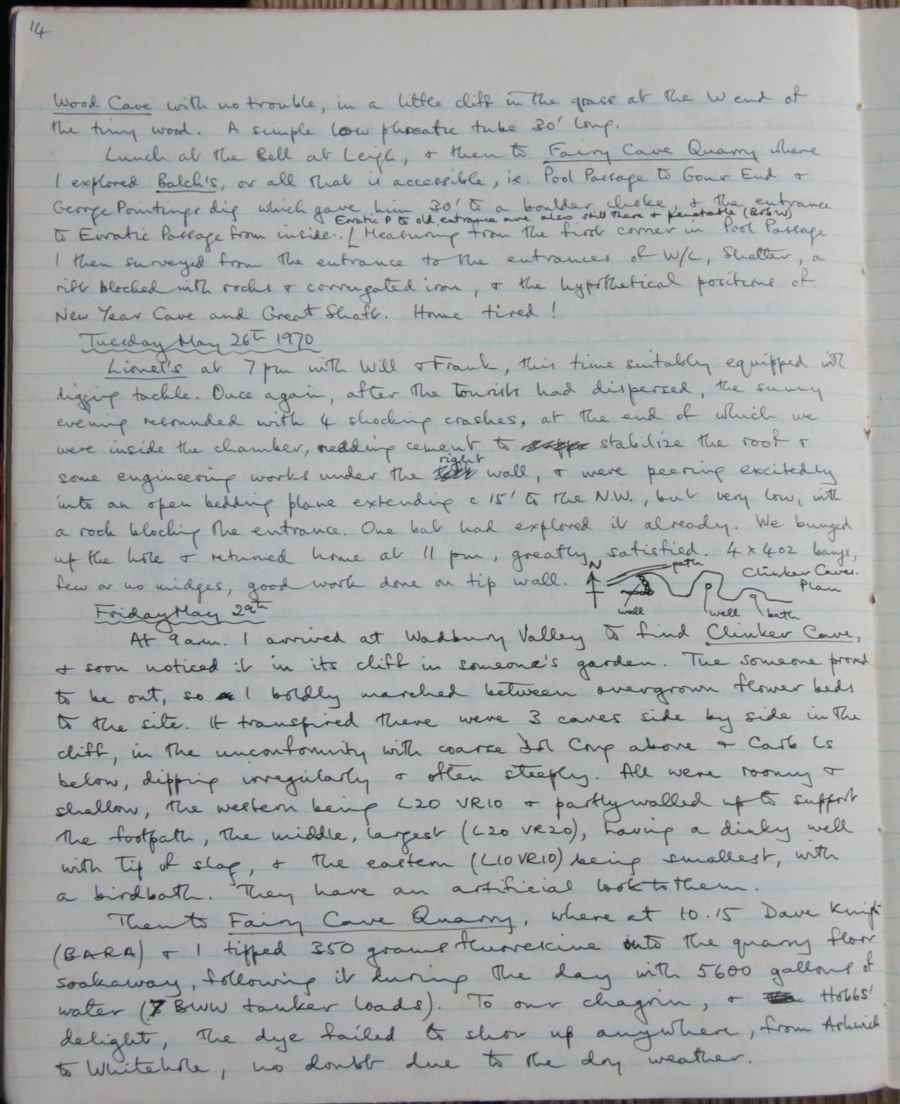 14
Wood Cave with no trouble, in a little cliff in the grass at the W end of
the tiny wood. A simple low phreatic tube 30' long.
Lunch at the Bell at Leigh, & then to Fairy Cave Quarry where
I explored Balch's, or all that is accessible, ie. Pool Passage to Gour End &
George Pointing's dig which gave him 30' to a boulder choke, & the entrance
Erratic P to old entrance are also still there & penetrable (BrBW)
to Erratic Passage from inside. [Measuring from the first corner in Pool Passage
I then surveyed from the entrance to the entrances of W/L, Shatter, a
rift blocked with rocks & corrugated iron, & the hypothetical positions of
New Year Cave and Great Shaft. Home tired!
Tuesday May 26th 1970
Lionel's at 7pm with Will & Frank, this time suitably equipped with
digging tackle. Once again, after the tourists had dispersed, the sunny
evening resounded with 4 shocking crashes, at the end of which we
were inside the chamber, needing cement to stabilize the roof &
some engineering works under the right wall, & were peering excitedly
into an open bedding plane extending c 15' to the N.W., but very low, with
a rock blocking the entrance. One bat had explored it already. We bunged
up the hole & returned home at 11 pm, greatly satisfied. 4 x 4oz bangs,
few or no midges, good work done on tip wall.
N
path
Clinker Caves.
Plan
wall
well
bath
Friday May 29th
At 9 am. I arrived at Wadbury Valley to find Clinker Cave,
& soon noticed it in its cliff in someone's garden. The someone proved
to be out, so I boldly marched between overgrown flower beds
to the site. It transpired there were 3 caves side by side in the
cliff, in the unconformity with coarse Jol Cong above & Carb Ls
below, dipping irregularly & often steeply. All were roomy &
shallow, the western being L20 VR10 & partly walled up to support
the footpath, the middle, largest (L20 VR20), having a dinky well
with tip of slag, & the eastern (L10 VR10) being smallest, with
a birdbath. They have an artificial look to them.
Then to Fairy Cave Quarry, where at 10.15 Dave Knipe
(BARA) & I tipped 350 grams fluorescine into the quarry floor
soakaway, following it during the day with 5600 gallons of
water (7 BWW tanker loads). To our chagrin, & Hobbs'
delight, the dye failed to show up anywhere, from Ashwick
to Whitehole, no doubt due to the dry weather.